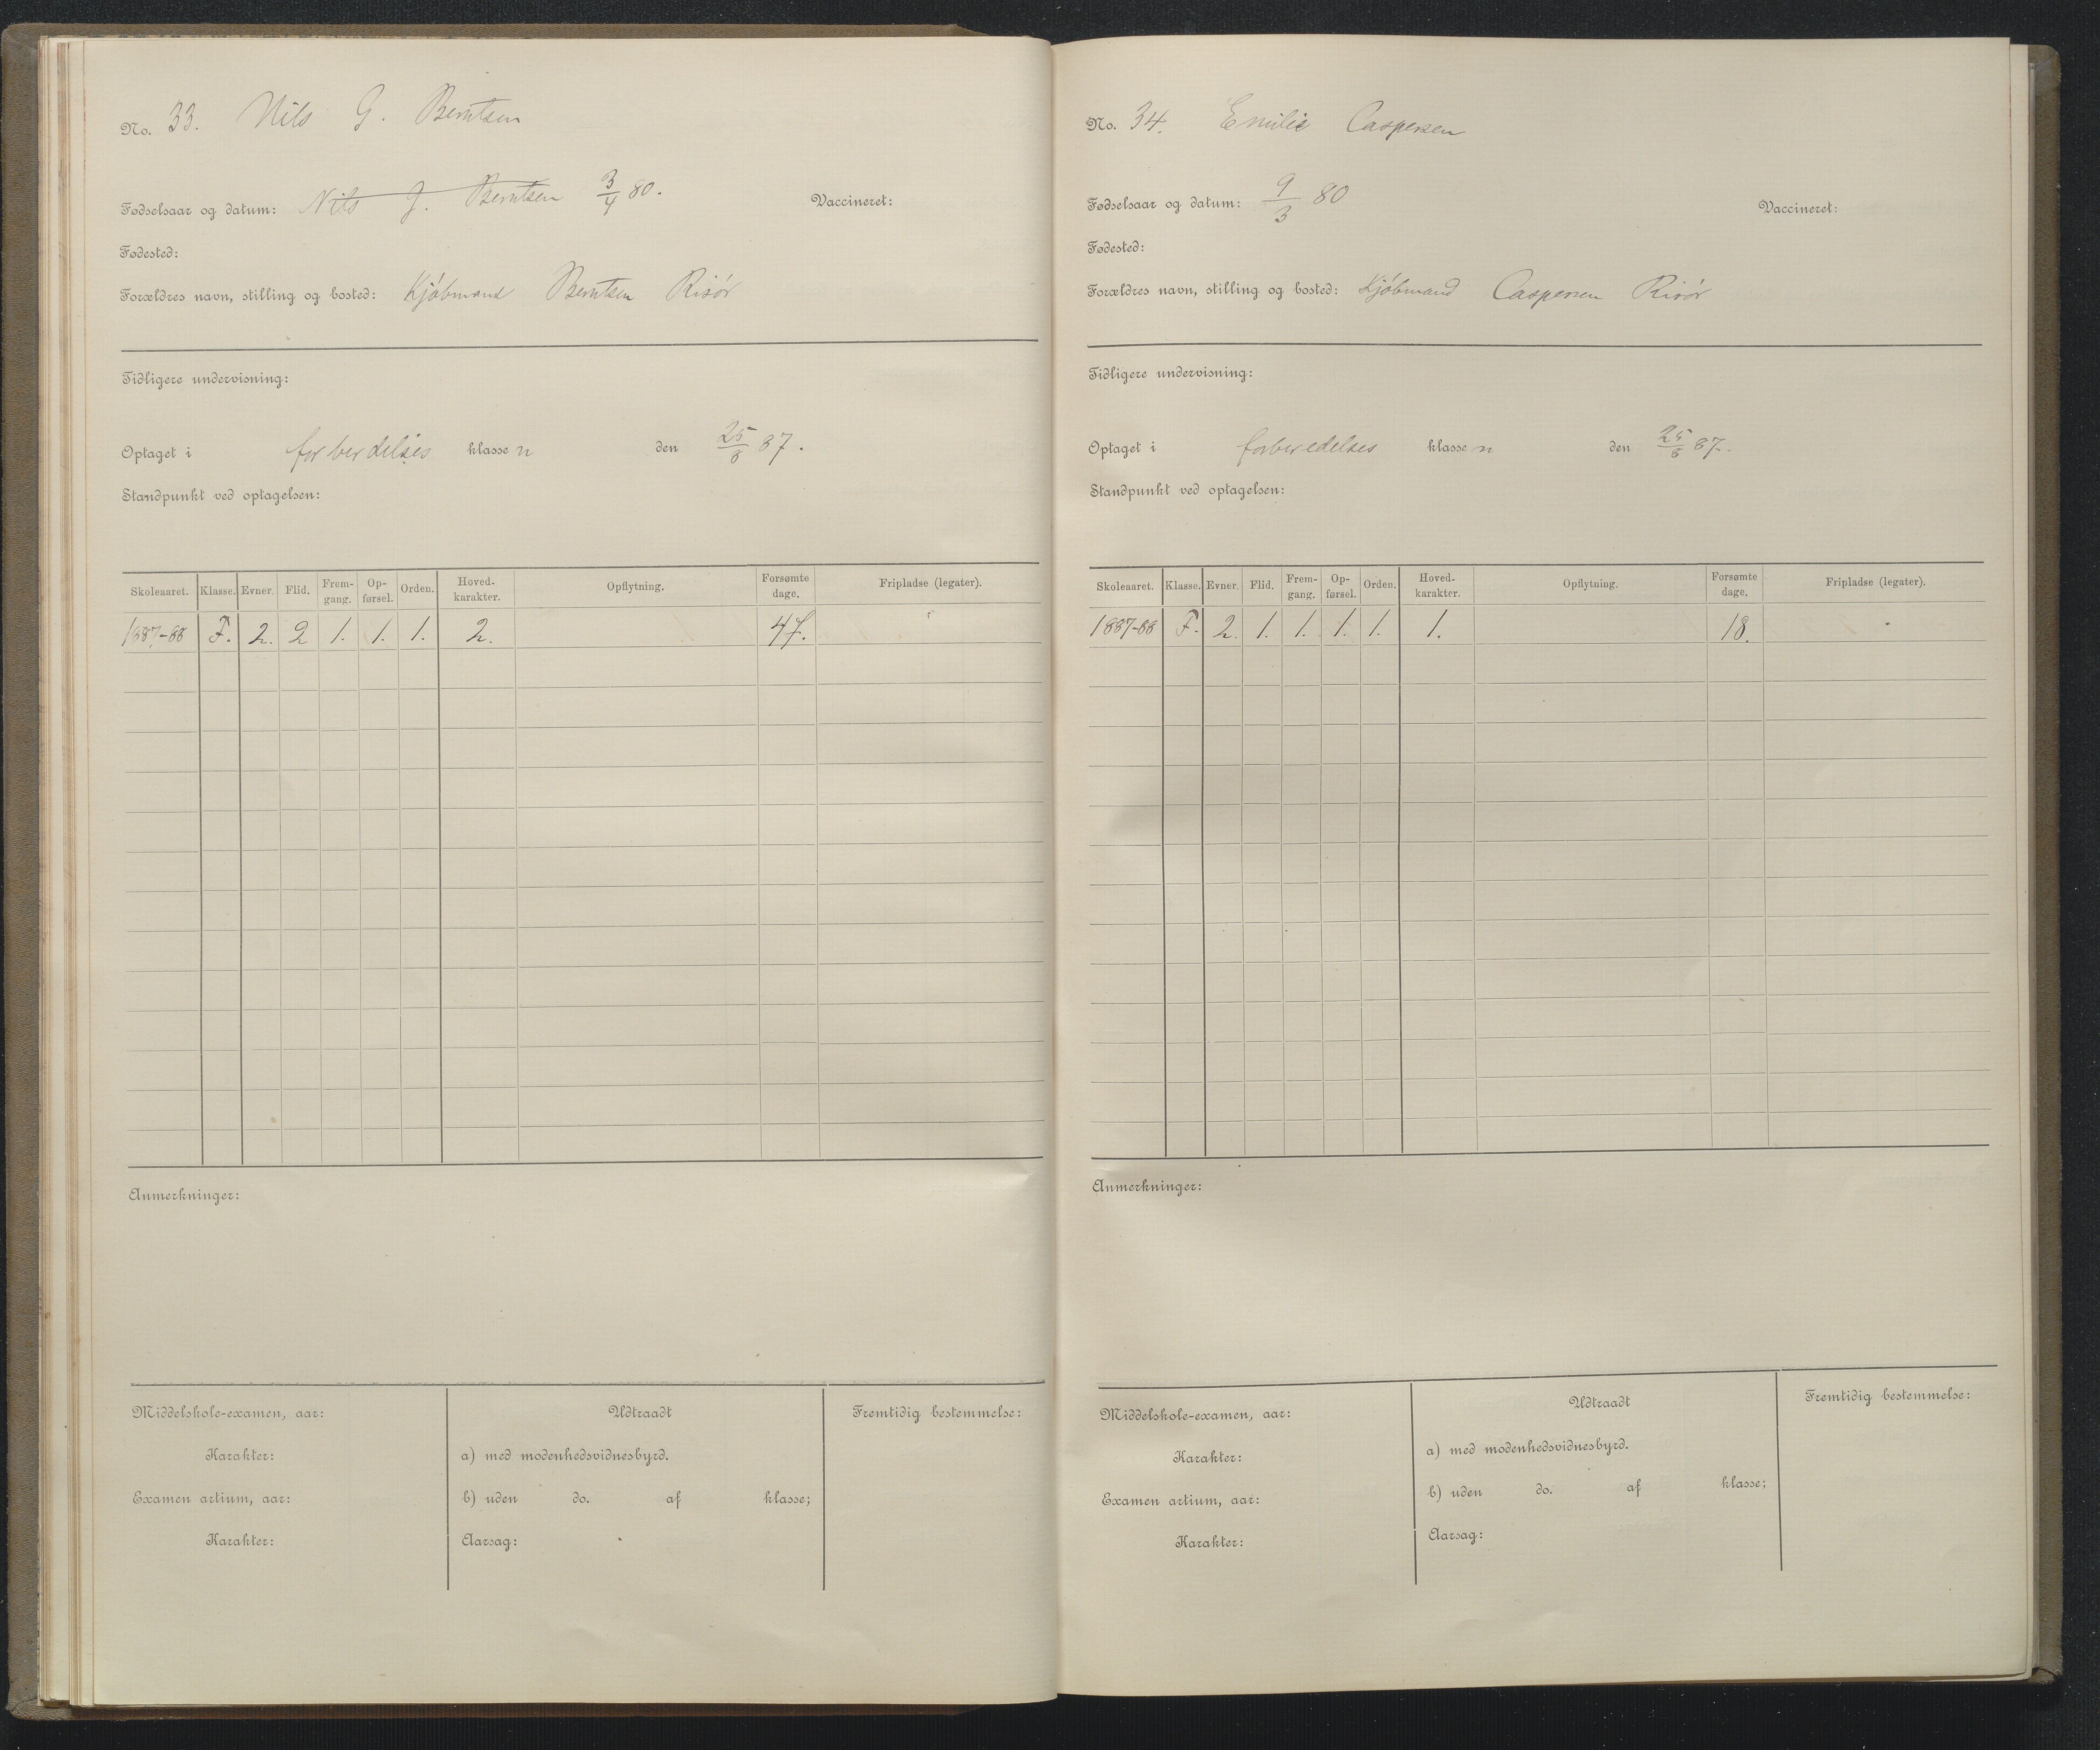 No. 33. Nils G. Berntsen
Fødselsaar og datum: Nils G. Berntsen 3/4 80. Vaccineret:
Fødested:
Forældres navn, stilling og bosted: Kjöbmand Berntsen Risör
Tidligere undervisning:
Optaget i forberdelses klassen den 25/8 87.
Standpunkt ved optagelsen:
Skoleaaret. Klasse. Evner. Flid. Frem-gang. Op-førsel. Orden. Hoved-karakter. Opflytning. Forsømte dage. Fripladse (legater).
1887-88 F. 2. 2 1. 1. 1. 2. 47.
Anmerkninger:
Middelskole-examen, aar:
Karakter:
Examen artium, aar:
Karakter:
Udtraadt
a) med modenhedsvidnesbyrd.
b) uden do. af klasse;
Aarsag:
Fremtidig bestemmelse:
No. 34. Emilie Caspersen
Fødselsaar og datum: 9/3 80 Vaccineret:
Fødested:
Forældres navn, stilling og bosted: Kjöbmand Caspersen Risör
Tidligere undervisning:
Optaget i forberedelses klassen den 25/8 87.
Standpunkt ved optagelsen:
Skoleaaret. Klasse. Evner. Flid. Frem-gang. Op-førsel. Orden. Hoved-karakter. Opflytning. Forsømte dage. Fripladse (legater).
1887-88 F. 2. 1. 1. 1. 1. 1. 18.
Anmerkninger:
Middelskole-examen, aar:
Karakter:
Examen artium, aar:
Karakter:
Udtraadt
a) med modenhedsvidnesbyrd.
b) uden do. af klasse;
Aarsag:
Fremtidig bestemmelse: